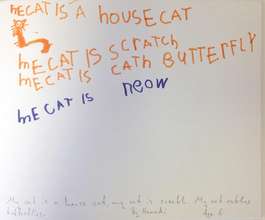 mECAT IS A HOUSECAT
mECAT IS SCRATCH
mECAT IS CATH BUTTERFLY
mE CAT IS neow
My cat is a house cat, my cat is scratch. My cat catches
butterflies. By Age 6